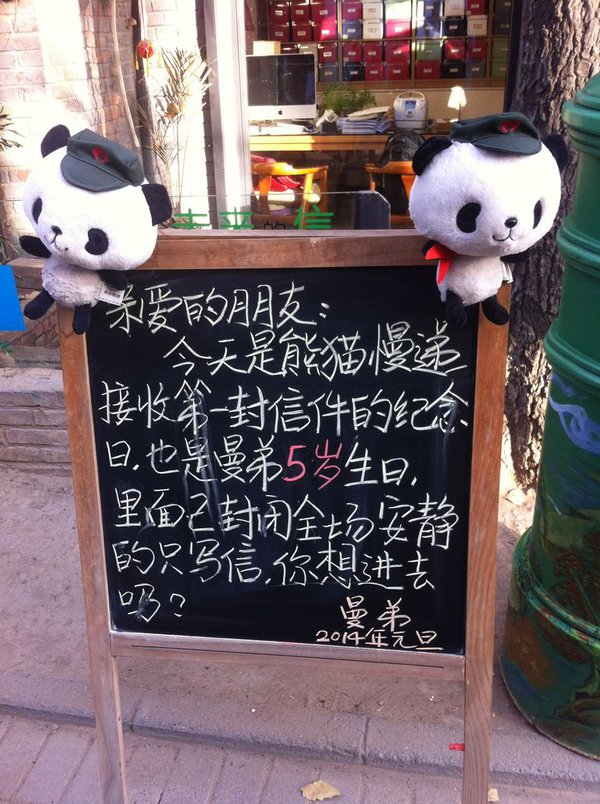 未来的信
亲爱的朋友：
今天是熊猫慢递
接收第一封信件的纪念
日，也是曼弟5岁生日，
里面已封闭全场安静
的只写信，你想进去
吗？
曼弟
2014年元旦